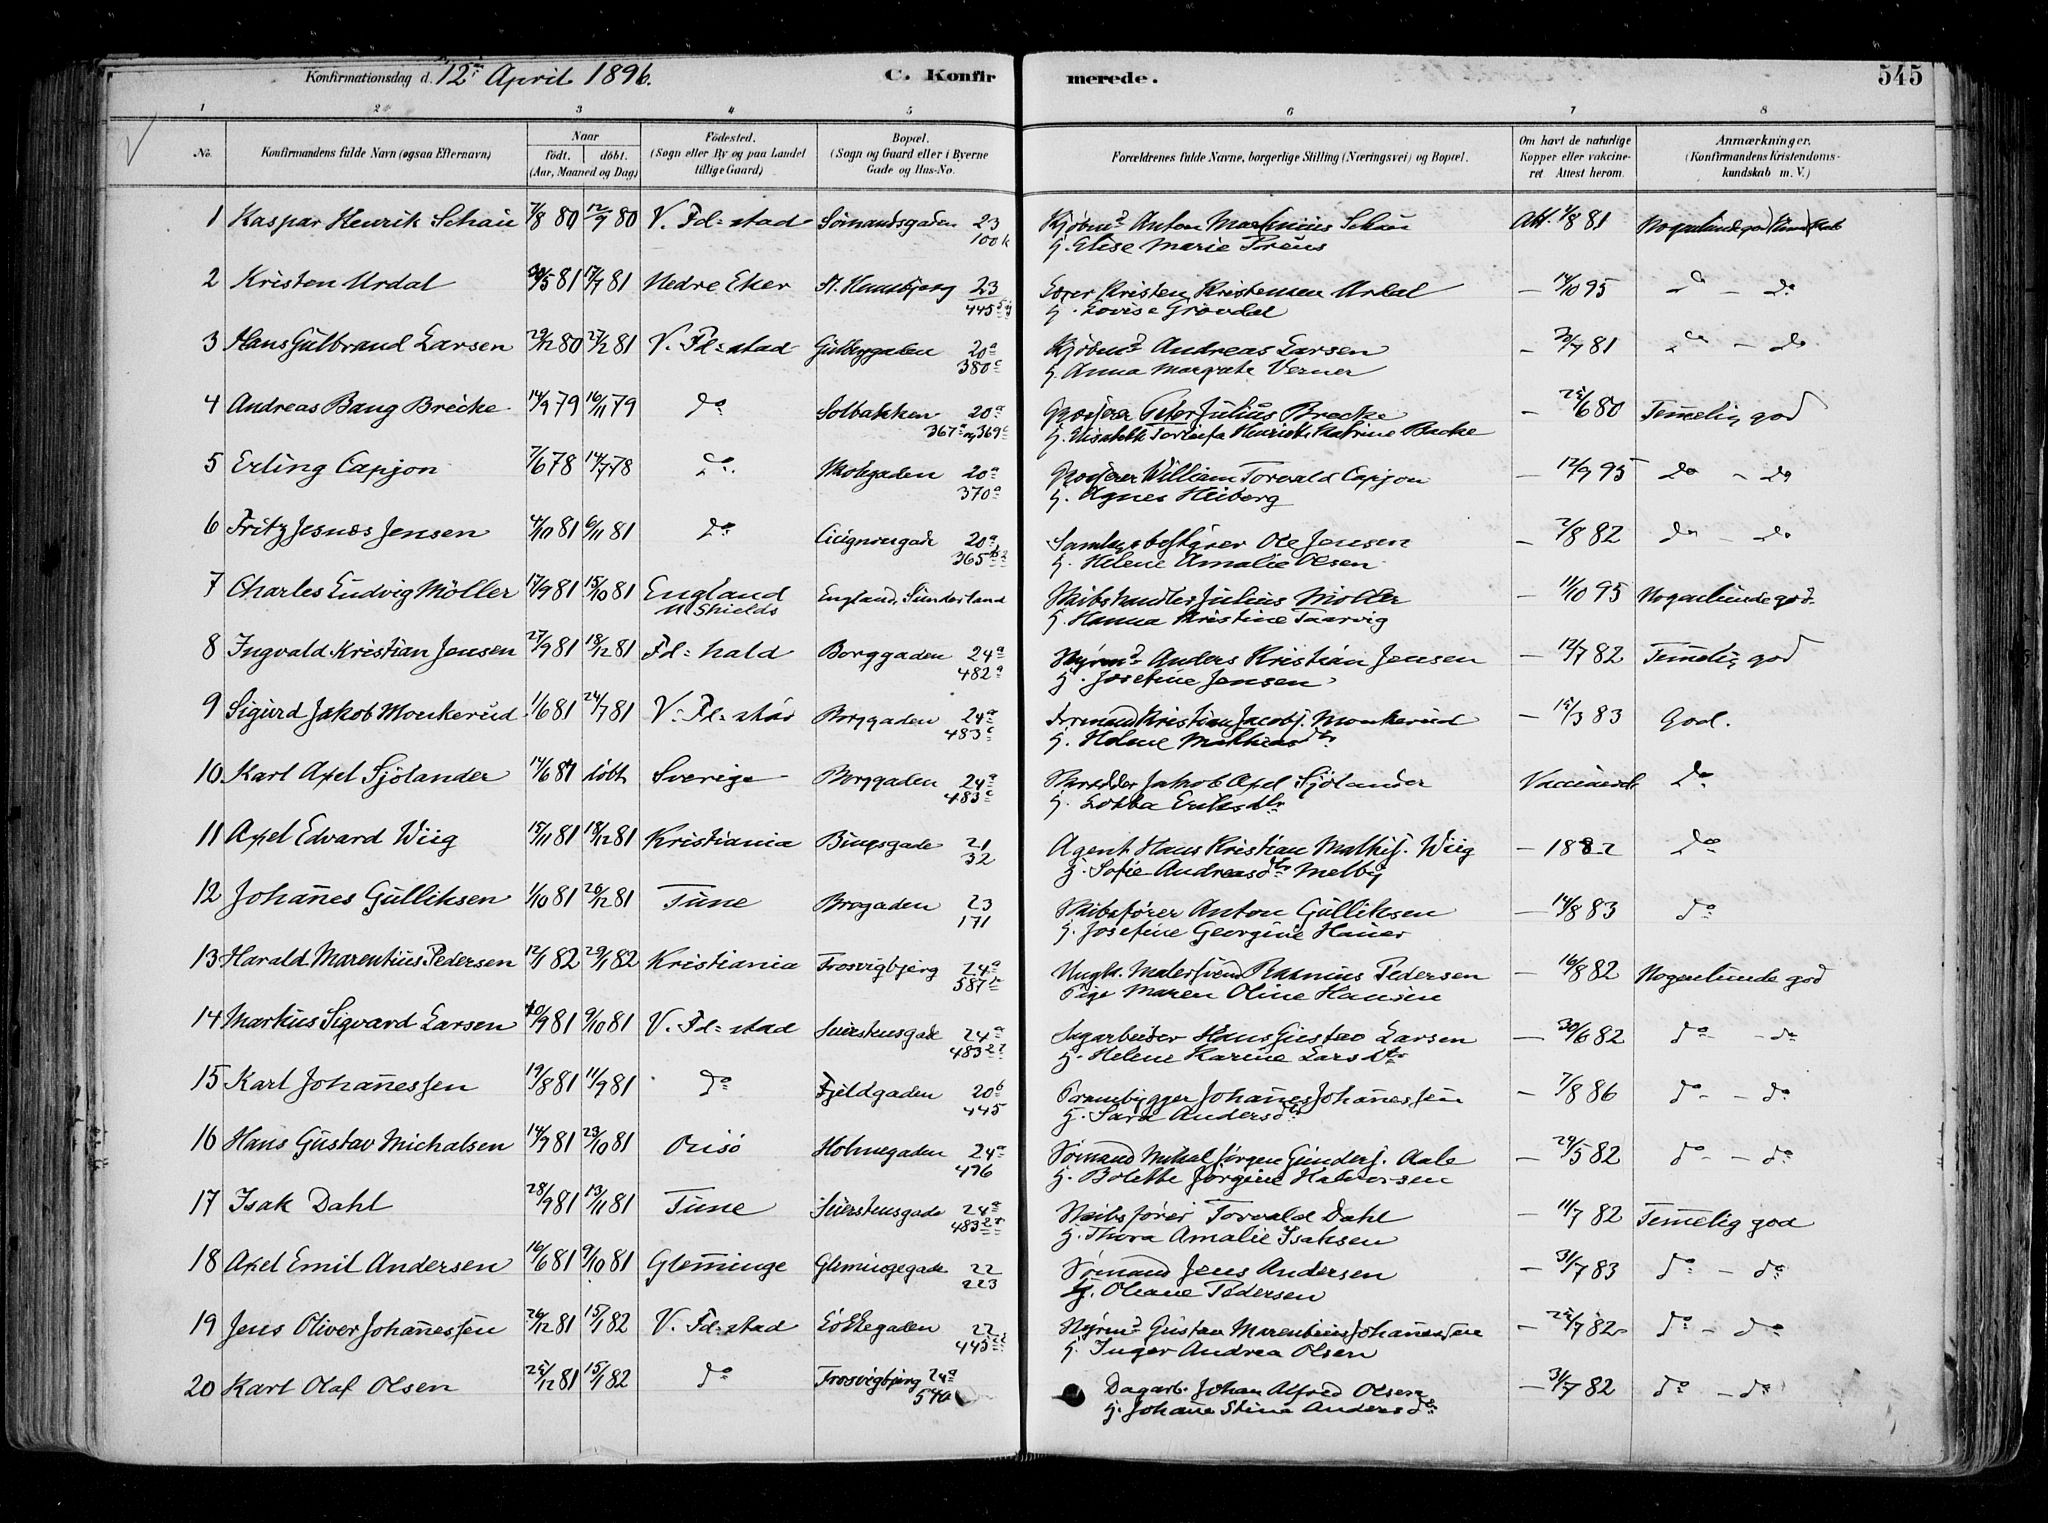 Konfirmationsdag d. 12te April 1896.
C. Konfir
merede.
545
1 2 3 4 5 6 7 8
No.
Konfirmandens fulde Navn (ogsaa Efternavn)
Naar
födt. döbt.
(Aar, Maaned og Dag)
Födested.
(Sogn eller By og paa Landet
tillige Gaard)
Bopæl.
(Sogn og Gaard eller i Byerne
Gade og Hus-No.
Forældrenes fulde Navne, borgerlige Stilling (Næringsvei) og Bopæl.
Om havt de naturlige
Kopper eller vakcine-
ret Attest herom.
Anmærkninger.
(Konfirmandens Kristendoms-
kundskab m. V.)
1 Kaspar Henrik Schau 7/8 80 12/9 80 V. Fd=stad Sømandsgaden 23 Kjøbmd Anton Martinius Schau Att. 1/8 81
100k H. Elise Marie
2 Kristen Urdal 30/5 81 17/7 81 Nedre Eker St. Hansbjerg 23 Kristen Kristensen Urdal — 14/10 95 do — do
445 H. Lovise Grøvdal
3 Hans Gulbrand Larsen 29/12 80 27/2 81 V. Fd=stad Gulbrggaden 20a Kjøbmd Andreas Larsen — 3/7 81 do — do
380c H. Anna Margrate Verner
4 Andreas Bang Brecke 14/9 79 16/11 79 do Solbakken 20a Grosserer Peter Julius Brecke — 25/6 80 Temmelig god
367a og 369c H. Elisabeth Torleifa Henriette Katrine Backe
5 Erling Capjon 7/6 78 14/7 78 do Skolegaden 20a Grosserer William Torvald Capjon — 12/9 95 do — do
370a H. Agnes Heiberg
6 Fritz Jesnæs Jensen 4/10 81 6/11 81 do Cicignongade 20a Samlagsbestyrer Ole Jensen — 2/8 82 do — do
365 H. Helene Amalie Olsen
7 Charles Ludvig Möller 17/9 81 15/10 81 England England, Sunderland Skibshandler Julius Møller — 11/10 95 Nogenlunde god.
N Shields H. Hanna Kristine Taarvig
8 Ingvald Kristian Jensen 27/9 81 18/12 81 Fd=hald Borggaden 24a Styrmd Anders Kristian Jensen — 12/7 82 Temmelig god
482a H. Josefine Jensen
9 Sigurd Jakob Monkerud 1/6 81 24/7 81 V. Fd=stad Borggaden 24a Formand Kristian Jacobs. Monkerud — 15/3 83 God.
483c H. Helene Mathiasdtr
10 Karl Axel Sjölander 14/6 81 döbt Sverige Borggaden 24a Skredder Jakob Axel Sjölander Vaccineret do
483c H. Lotta Eriksdtr
11 Axel Edvard Wiig 15/11 81 18/12 81 Kristiania Bingsgade 21 Agent Hans Kristian Mathis. Wiig — 1882 do
32 H. Sofie Andreasdtr Melby
12 Johanes Gulliksen 1/10 81 26/12 81 Tune Brogaden 23 Skibsfører Anton Gulliksen — 14/8 83 do
171 H. Josefine Georgine Hauer
13 Harald Marentius Pedersen 12/1 82 29/1 82 Kristiania Trosvigbjerg 24a Ungk. Malersvend Rasmus Pedersen — 16/8 82 Nogenlunde god
587 Pige Maren Oline Hansen
14 Markus Sigvard Larsen 20/9 81 9/10 81 V. Fd=stad Suerstensgade 24a Sagarbeider Hans Gustav Larsen — 30/6 82 do — do
483 H. Helene Karine Larsdtr
15 Karl Johanessen 19/8 81 11/9 81 do Fjeldgaden 20b Prambygger Johanes Johanessen — 7/8 86 do — do
445 H. Sara Andersdtr
16 Hans Gustav Michalsen 14/9 81 23/10 81 Onsö Holmegaden 24a Sømand Mikal Jørgen Gunders. Aale — 24/5 82 do — do
476 H. Bolette Jörgine Halvorsen
17 Isak Dahl 28/9 81 13/11 81 Tune Suerstensgade 24a Skibsfører Torvald Dahl — 11/7 82 Temmelig god
483 H. Thora Amalie Isaksen
18 Axel Emil Andersen 16/6 81 9/10 81 Glemminge Glemmingegade 22 Sømand Jens Andersen — 31/7 83 do — do
223 H. Oliane Pedersen
19 Jens Oliver Johanessen 26/12 81 15/1 82 V. Fd=stad Løkkegaden 22 Styrmd Gustav Marentius Johanessen — 25/7 82 do — do
445 H. Inger Andrea Olsen
20 Karl Olaf Olsen 25/12 81 15/1 82 do Trosvigbjerg 24a Dagarb. Johan Alfred Olsen — 31/7 82 do — do
570 H. Johane Stina Andersdtr